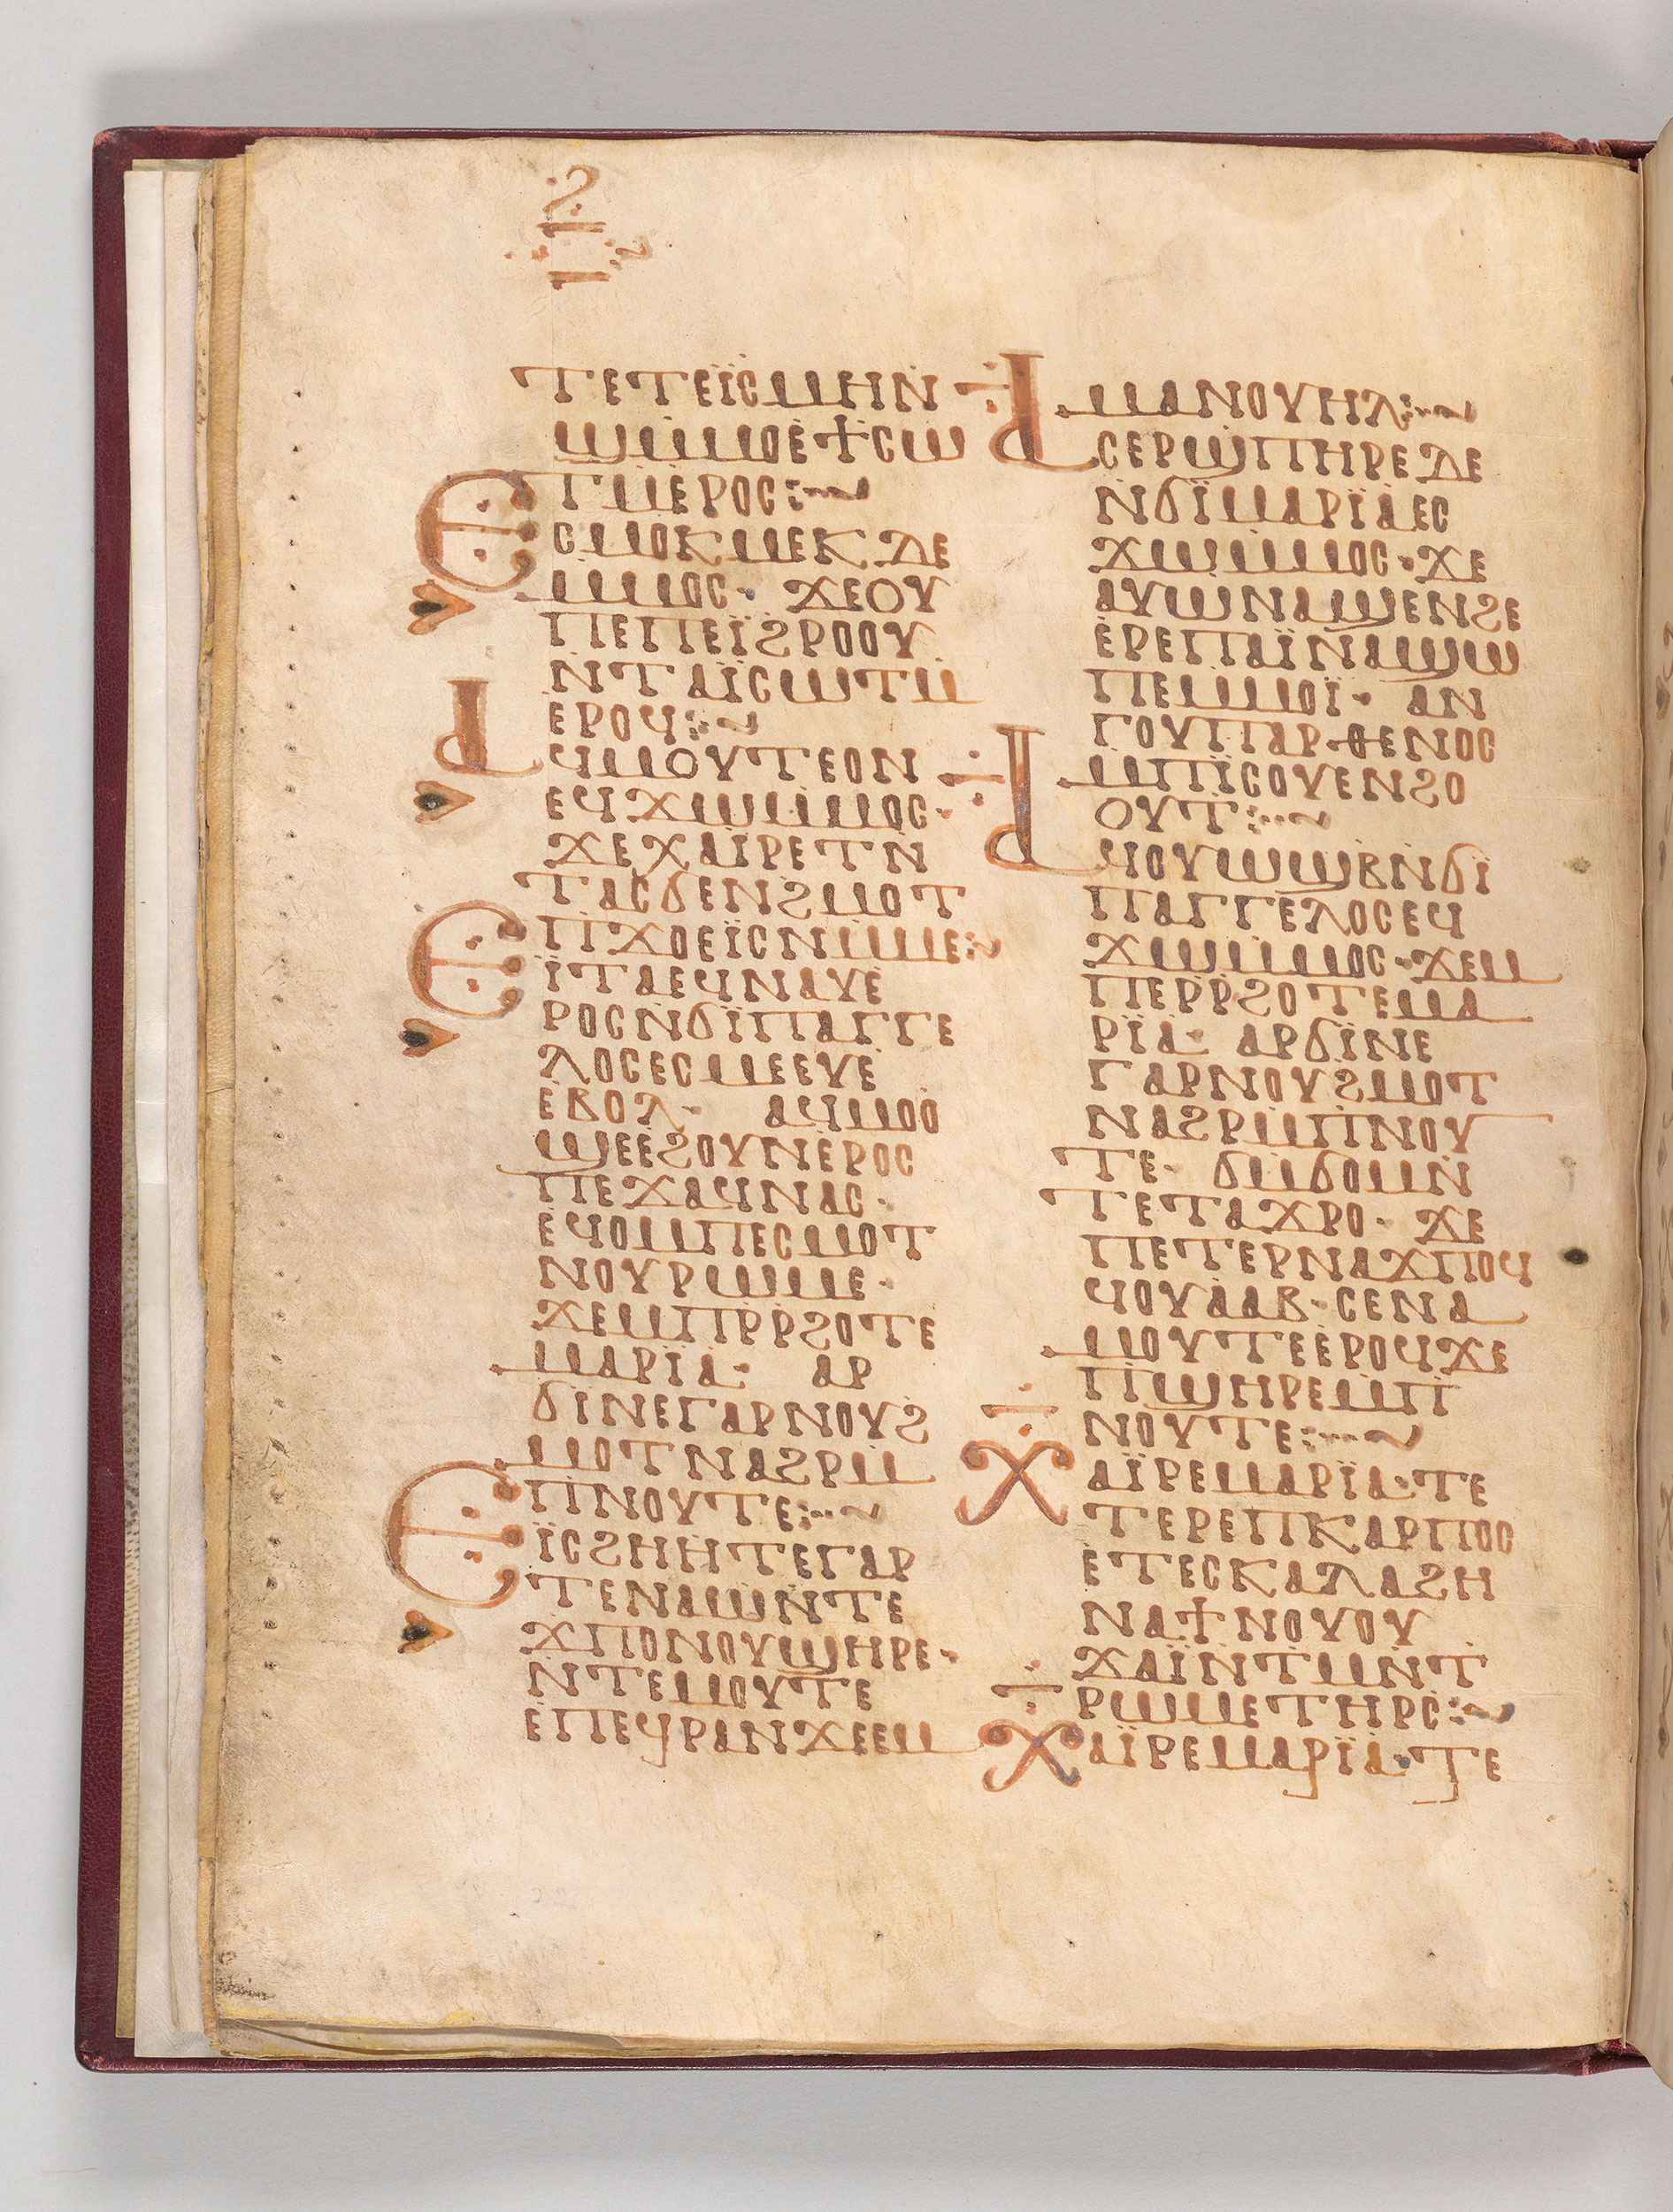 ⲋ
ⲧⲉⲧⲉⲓ̈ⲥⲙⲏⲛ
ϣⲙ̇ⲙⲟⲉϯⲥⲱ
ⲧⲙⲉⲣⲟⲥ:~
Ⲉⲥⲙⲟⲕⲙⲉⲕⲇⲉ
ⲙⲙⲟⲥ· ϫⲉⲟⲩ
ⲡⲉⲡⲉⲓ̈ϩⲣⲟⲟⲩ
ⲛ̇ⲧⲁⲓ̈ⲥⲱⲧⲙ
ⲉⲣⲟϥ:~
Ⲁϥⲙⲟⲩⲧⲉⲟⲛ
ⲉϥϫⲱⲙⲙⲟⲥ·
ϫⲉⲭⲁⲓ̈ⲣⲉⲧⲛ̇
ⲧⲁⲥϭⲉⲛϩⲙⲟⲧ
ⲡϫⲟⲉⲓ̈ⲥⲛⲙⲙⲉ:~
Ⲉⲓ̈ⲧⲁⲉϥⲛⲁⲩⲉ̇
ⲣⲟⲥⲛ̇ϭⲓ̈ⲡⲁⲅⲅⲉ
ⲗⲟⲥⲉⲥⲙⲉⲉⲩⲉ̇
ⲉ̇ⲃⲟⲗ· ⲁϥⲙⲟⲟ
ϣⲉⲉ̇ϩⲟⲩⲛⲉ̇ⲣⲟⲥ
ⲡⲉϫⲁϥⲛⲁⲥ·
ⲉ̇ϥⲟⲙⲡⲉⲥⲙⲟⲧ
ⲛⲟⲩⲣⲱⲙⲉ·
ϫⲉⲙⲡⲣⲣϩⲟⲧⲉ
ⲙⲁⲣⲓ̈ⲁ· ⲁⲣ
ϭⲓⲛⲉⲅⲁⲣⲛⲟⲩϩ
ⲙⲟⲧⲛⲁϩⲣⲙ
ⲡⲛⲟⲩⲧⲉ:~
Ⲉⲓ̈ⲥϩⲏⲏⲧⲉⲅⲁⲣ
ⲧⲉⲛⲁⲱⲛ̇ⲧⲉ
ϫⲡⲟⲛⲟⲩϣⲏⲣⲉ·
ⲛ̇ⲧⲉⲙⲟⲩⲧⲉ
ⲉⲡⲉϥⲣⲁⲛϫⲉⲉⲙ
ⲙⲁⲛⲟⲩⲏⲗ:~
Ⲁⲥⲉⲣϣⲡⲏⲣⲉⲇⲉ
ⲛ̇ϭⲓ̈ⲙⲁⲣⲓ̈ⲁⲉⲥ
ϫⲱⲙⲙⲟⲥ·ϫⲉ
ⲁⲩⲱⲛⲁϣⲉⲛϩⲉ
ⲉ̇ⲣⲉⲡⲁⲓ̈ⲛⲁϣⲱ
ⲡⲉⲙⲙⲟⲓ̈· ⲁⲛ
ⲅⲟⲩⲡⲁⲣⲑⲉⲛⲟⲥ
ⲙⲡⲓ̈ⲥⲟⲩⲉⲛϩⲟ
ⲟⲩⲧ:~
Ⲁϥⲟⲩⲱϣⲃⲛ̇ϭⲓ̈
ⲡⲁⲅⲅⲉ̇ⲗⲟⲥⲉϥ
ϫⲱⲙⲙⲟⲥ·ϫⲉⲙ
ⲡⲉⲣⲣϩⲟⲧⲉⲙⲁ
ⲣⲓ̈ⲁ· ⲁⲣϭⲓ̈ⲛⲉ
ⲅⲁⲣⲛⲟⲩϩⲙⲟⲧ
ⲛⲁϩⲣⲙⲡⲛⲟⲩ
ⲧⲉ· ϭⲙϭⲟⲙⲛ̇
ⲧⲉⲧⲁϫⲣⲟ· ϫⲉ
ⲡⲉⲧⲉⲣⲛⲁϫⲡⲟϥ
ϥⲟⲩⲁⲁⲃ·ⲥⲉⲛⲁ
ⲙⲟⲩⲧⲉⲉ̇ⲣⲟϥϫⲉ
ⲡϣⲏⲣⲉⲙⲡ
ⲛⲟⲩⲧⲉ:~
Ⲭⲁⲓ̈ⲣⲉⲙⲁⲣⲓ̈ⲁ·ⲧⲉ
ⲧⲉⲣⲉⲡⲕⲁⲣⲡⲟⲥ
ⲉ̇ⲧⲉⲥⲕⲁⲗⲁϩⲏ
ⲛⲁϯⲛⲟⲩⲟⲩ
ϫⲁⲓ̈ⲛ̇ⲧⲙⲛ̇ⲧ
ⲣⲱⲙⲉⲧⲏⲣⲥ:~
Ⲭⲁⲓ̈ⲣⲉⲙⲁⲣⲓ̈ⲁ·ⲧⲉ